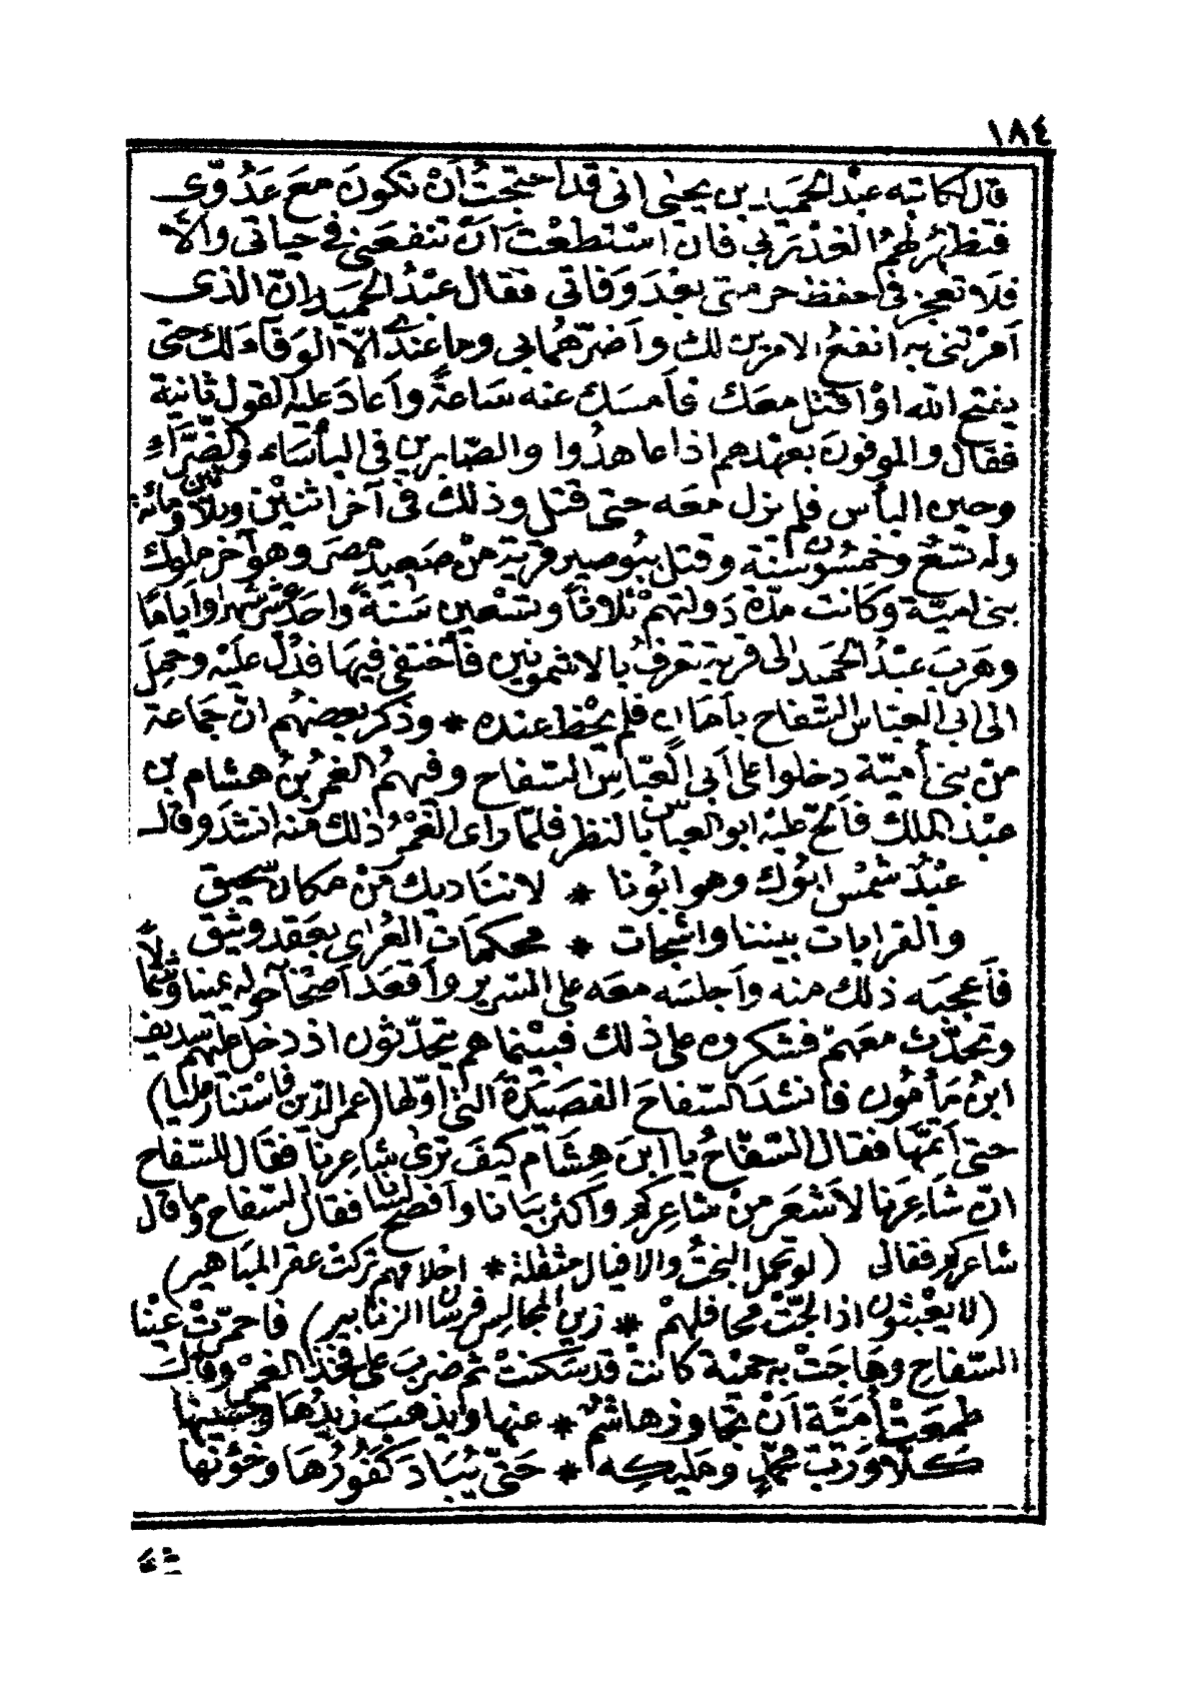 ١٨٤
قال لكاتبه عبد الحميد بن يحيى انى قد احتجتُ أنْ تكونَ معَ عَدُوّى
فتظهرُ لهمُ الغدْرَ بى فان اسْتطعْتَ أنَّ تنفعَنى فى حياتى والّا
فلا تعجز فى حفظ حرمتى بعْدَ وَفاتى فقال عبْدُ الحميدِ انّ الذى
أمرْتنى به انفعُ الامرين لك وأضرّهُما بى وما عندى الّا الوَفاءَ لك حتى
يفتح الله اوْ اقتل معك فأمسك عنه سَاعةً وأعادَ عليه القول ثانية
فقال والموفونَ بعهْدهم اذا عاهدُوا والصّابرين فى البأسَاء والضّرَّاءِ
وحين البأس فلم يزل معَه حتى قتل وذلك فى آخر اثنيْن وثلاثين ومائة
وله تسعٌ وخمسُون سنة وقتل ببُوصير قرية منْ صَعيد مصرَ وهو آخر ملوك
بنى اميّة وَكانت مدّة دَولتهمْ ثلاثاً وتسْعين سَنةً واحَدَ عشر شهراً وأياماً
وهَربَ عبْدُ الحميد الى قرية تعرفُ بالاشمونين فأختفى فيهَا فدُلَّ علَيْه وحُمِلَ
الى ابى العبّاس السّفاح بأمَان فلم يحْظ عنده * وذكر بعضهُم انّ جَماعة
منْ بنى أميّة دخلوا على أبى العبّاسِ السّفاح وفيهمُ الغمرُ بنُ هشام بن
عبْد الملك فألحّ عليْه ابو العباس بالنظر فلمّا رأى الغمْرُ ذلك منه انشدَ وقال
عبْدُ شمْس ابُوك وهو ابُونا * لا نناديك منْ مكان سحيق
والقرابات بيننا واشجات * محكماتُ العُرى بعَقد وثيق
فأعجبَه ذلك منه وأجلسَه معَه على السّرير وأقعَدَ أصْحابَه حوله يميناً وشمالاً
وتحدّث معَهمْ فشكروه على ذلك فبيْنما هم يتحدّثون اذ دخل عليهم سديف
ابنُ مَأمُون فأنشدَ السّفاحَ القصيدَة التى أوّلها (عمر الدّين فاسْتنار مليا)
حتى أتمّها فقال السّفاحُ يا ابنَ هِشَام كيفَ ترى شاعِرنا فقال للسّفاح
انّ شاعِرَنا لاشعَر منْ شاعِركم وأكثر بيَانا وأفصح لسَانا فقال السّفاح وما قال
شاعركم فقال (لو تحمل البخْتُ والافيال مثقلة * احْلامهم تركتْ عقر المبَاهير)
(لا يعْبثون اذا لجّتْ محافلهمْ * زين المجالِس فرسان الزنابير) فاحمرّتْ عيْنا
السّفاحِ وهَاجَتْ به حميّة كانتْ قد سَكنتْ ثم ضربَ على فخذ الغمر وقال
طمعَتْ أميّة أنْ تجاوز هاشمٌ * عنها ويذهب زيدُهَا وحسينها
كلّا وَربّ محمّدٍ ومليكِه * حَتّى يُبَادَ كَفُورُهَا وخؤُنها